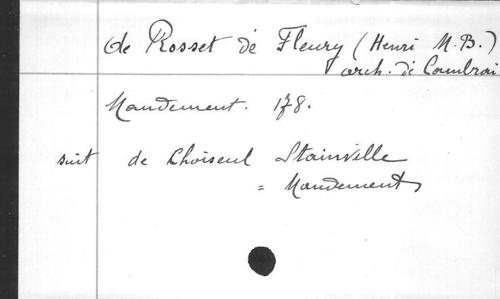 de Rosset de Fleury (Henri M.B.)
arch. de Cambrai
Mandement. 178.
suit de Choiseul Stainville
= Mandements